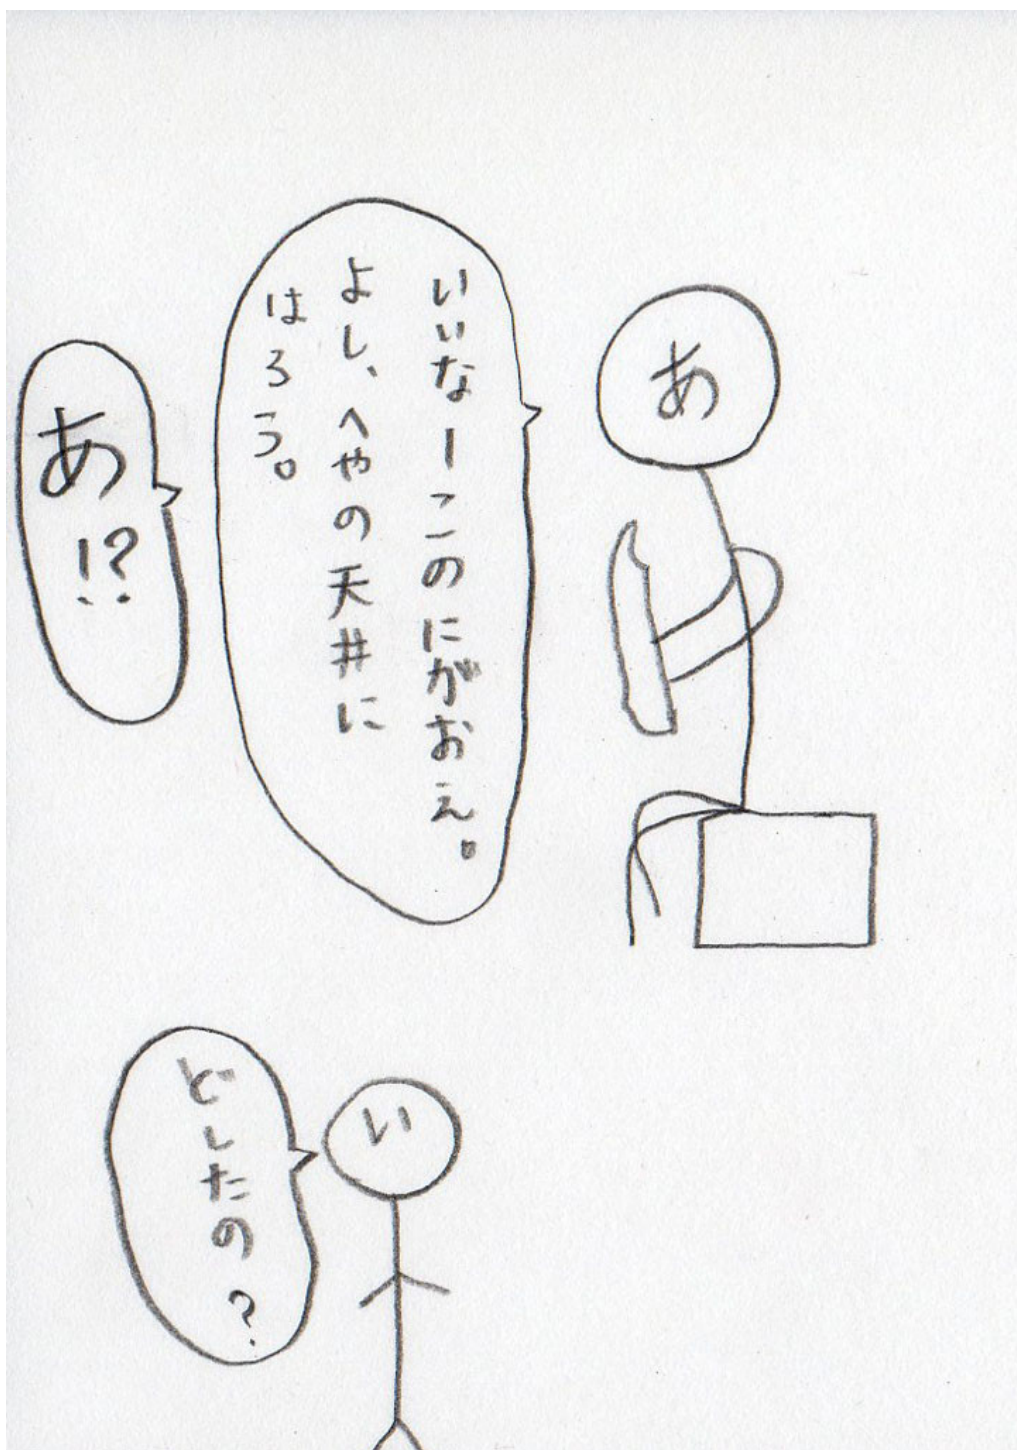 あ
いいなーこのにがおえ。
よし、へやの天井に
はろう。
あ!?
い
どしたの?